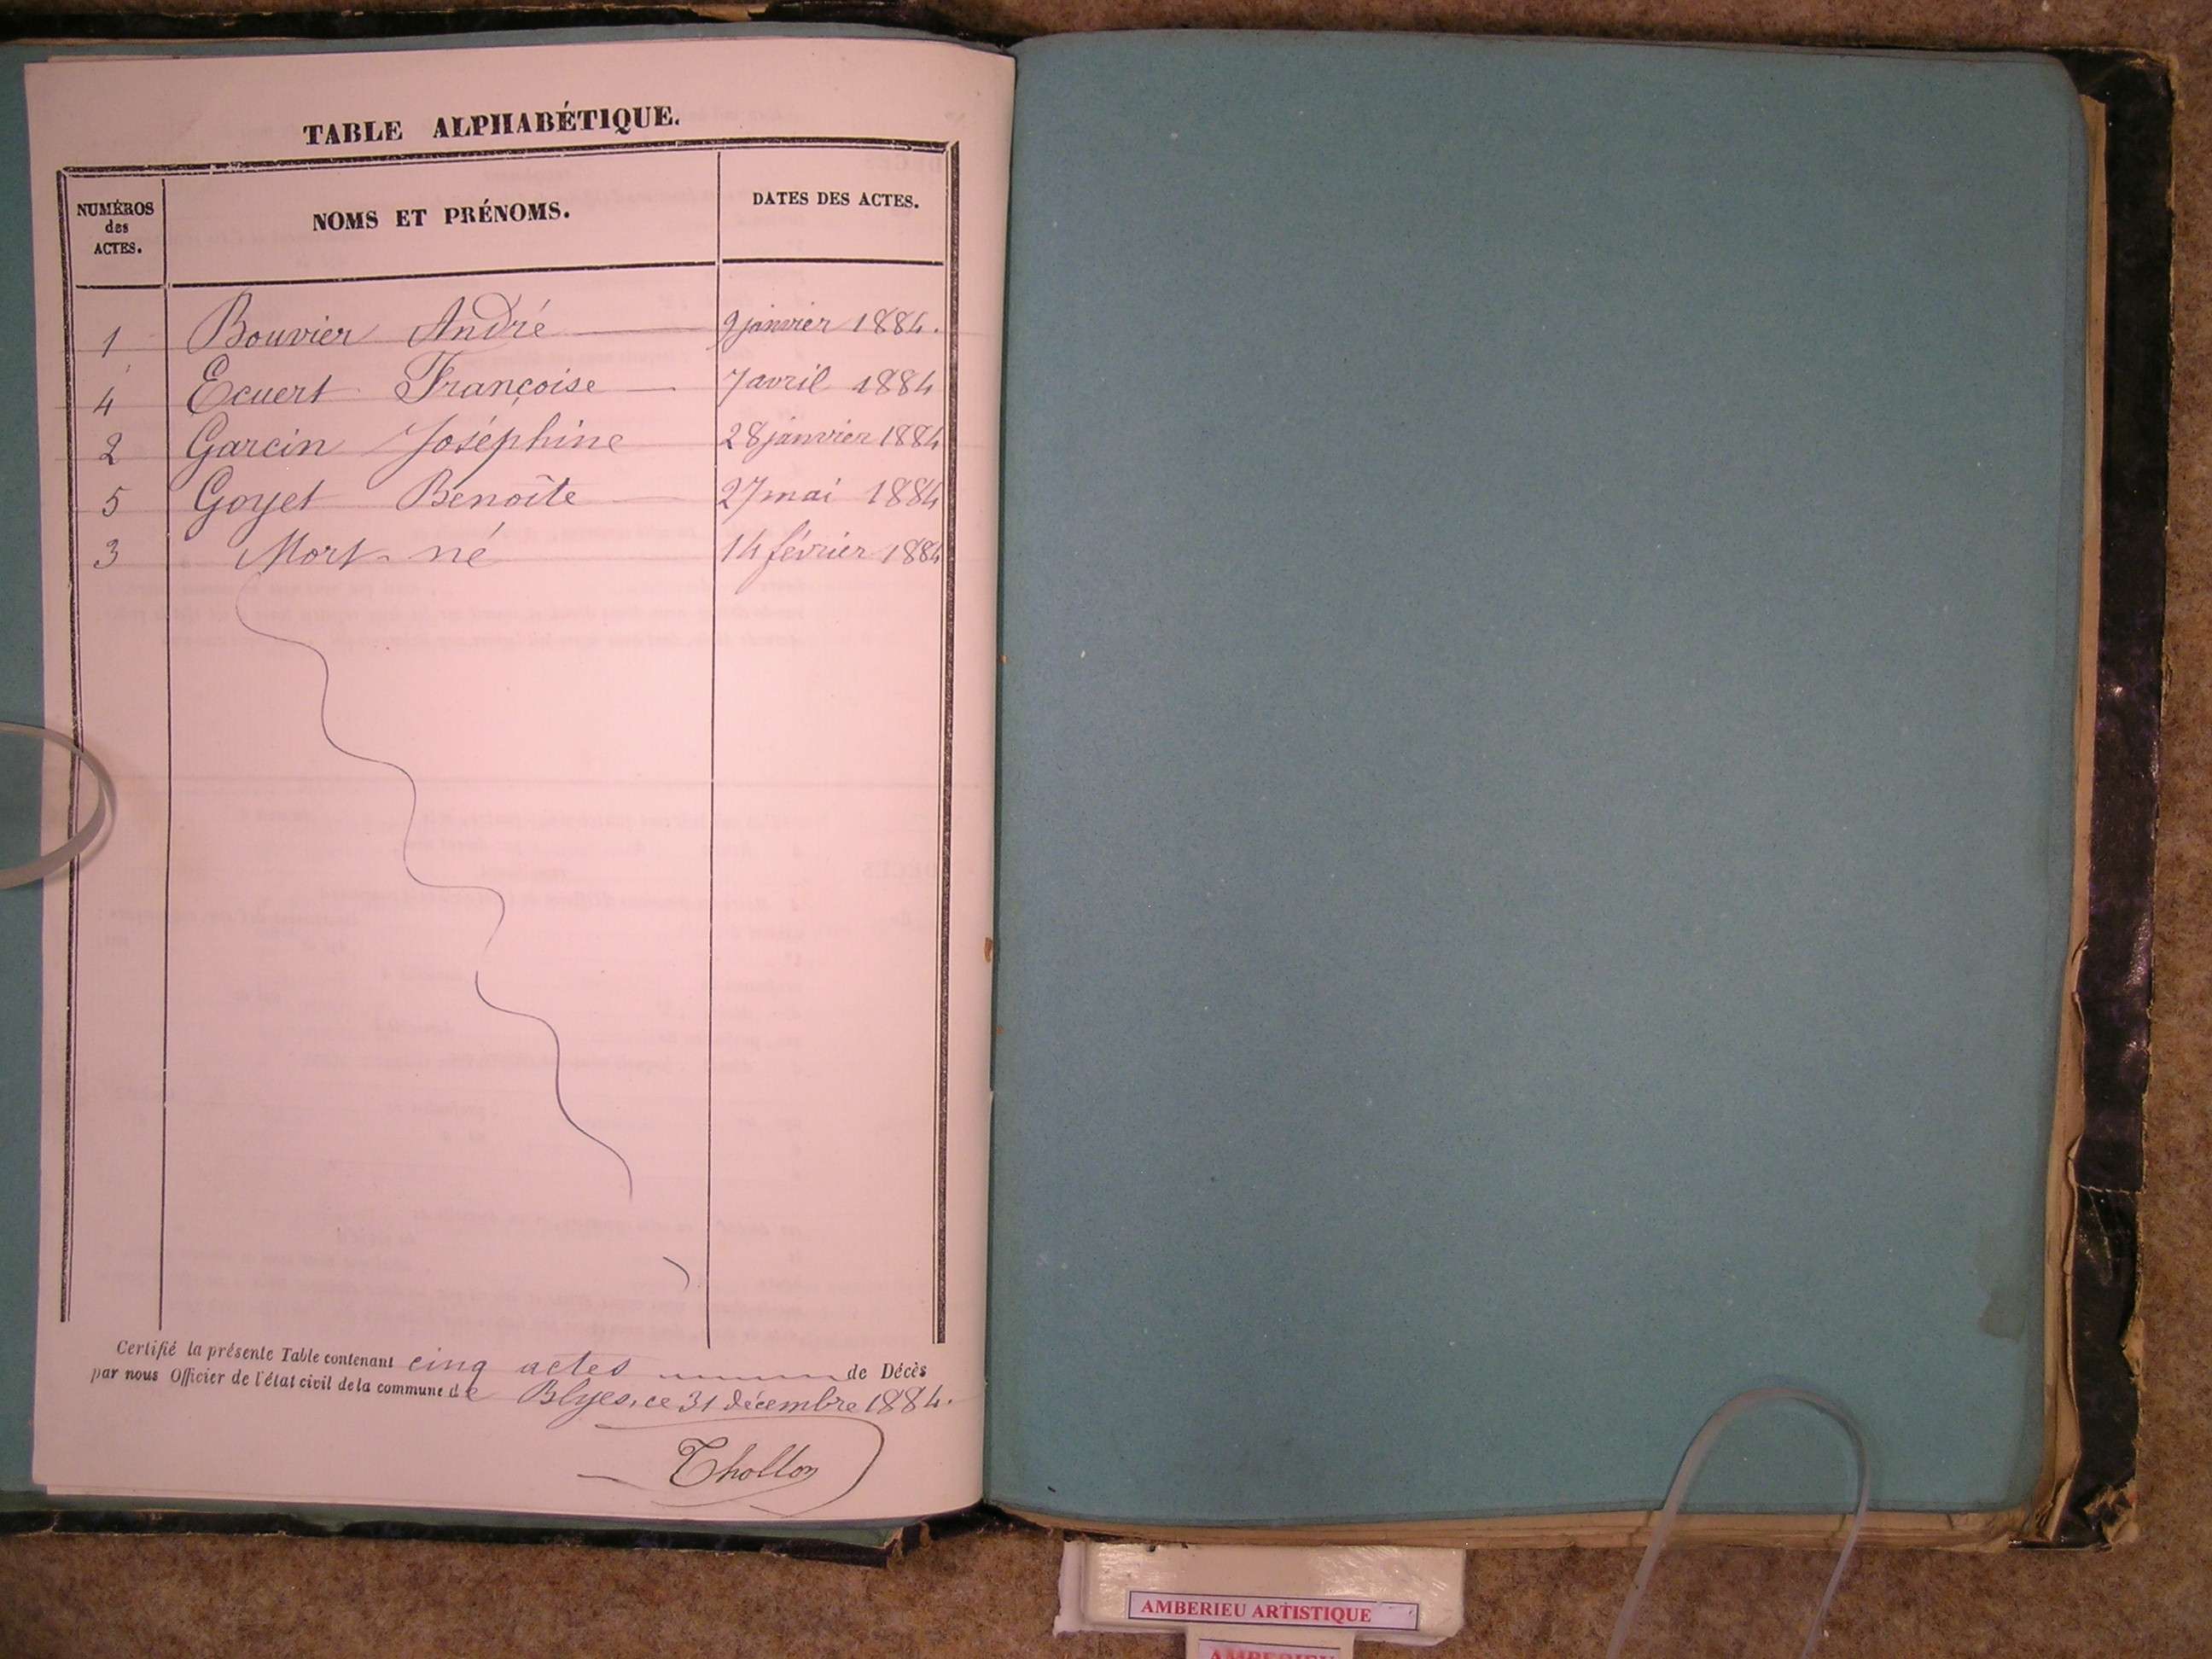 TABLE ALPHABÉTIQUE.
NUMÉROS des ACTES. NOMS ET PRÉNOMS. DATES DES ACTES.
1 Bouvier André 9 janvier 1884.
4 Ecuert Françoise 7 avril 1884
2 Garcin Joséphine 28 janvier 1884
5 Goyet Benoîte 27 mai 1884
3 Mort-né 14 février 1884
Certifié la présente Table contenant cinq actes de Décès
par nous Officier de l'état civil de la commune de Blyes, ce 31 décembre 1884.
Thollon
AMBERIEU ARTISTIQUE
AMBERIEU